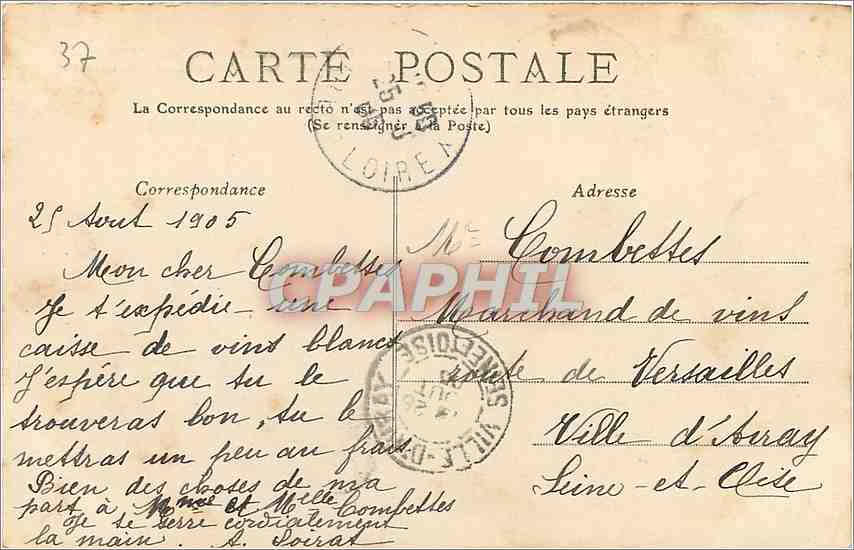 37
CARTE POSTALE
La Correspondance au recto n'est pas acceptée par tous les pays étrangers
(Se renseigner à la Poste)
LOIRE
Correspondance
25 Août 1905
Mon cher Combettes
Je t'expédie une
caisse de vins blancs
J'espère que tu le
trouveras bon, tu le
mettras un peu au frais
Bien des choses de ma
part à Mme et Melle Combettes
Je te serre cordialement
la main. A. Soirat
Adresse
Mr Combettes
Marchand de vins
route de Versailles
Ville d'Avray
Seine-et-Oise
VILLE-D'AVRAY
SEINE-ET-OISE
CPAPHIL